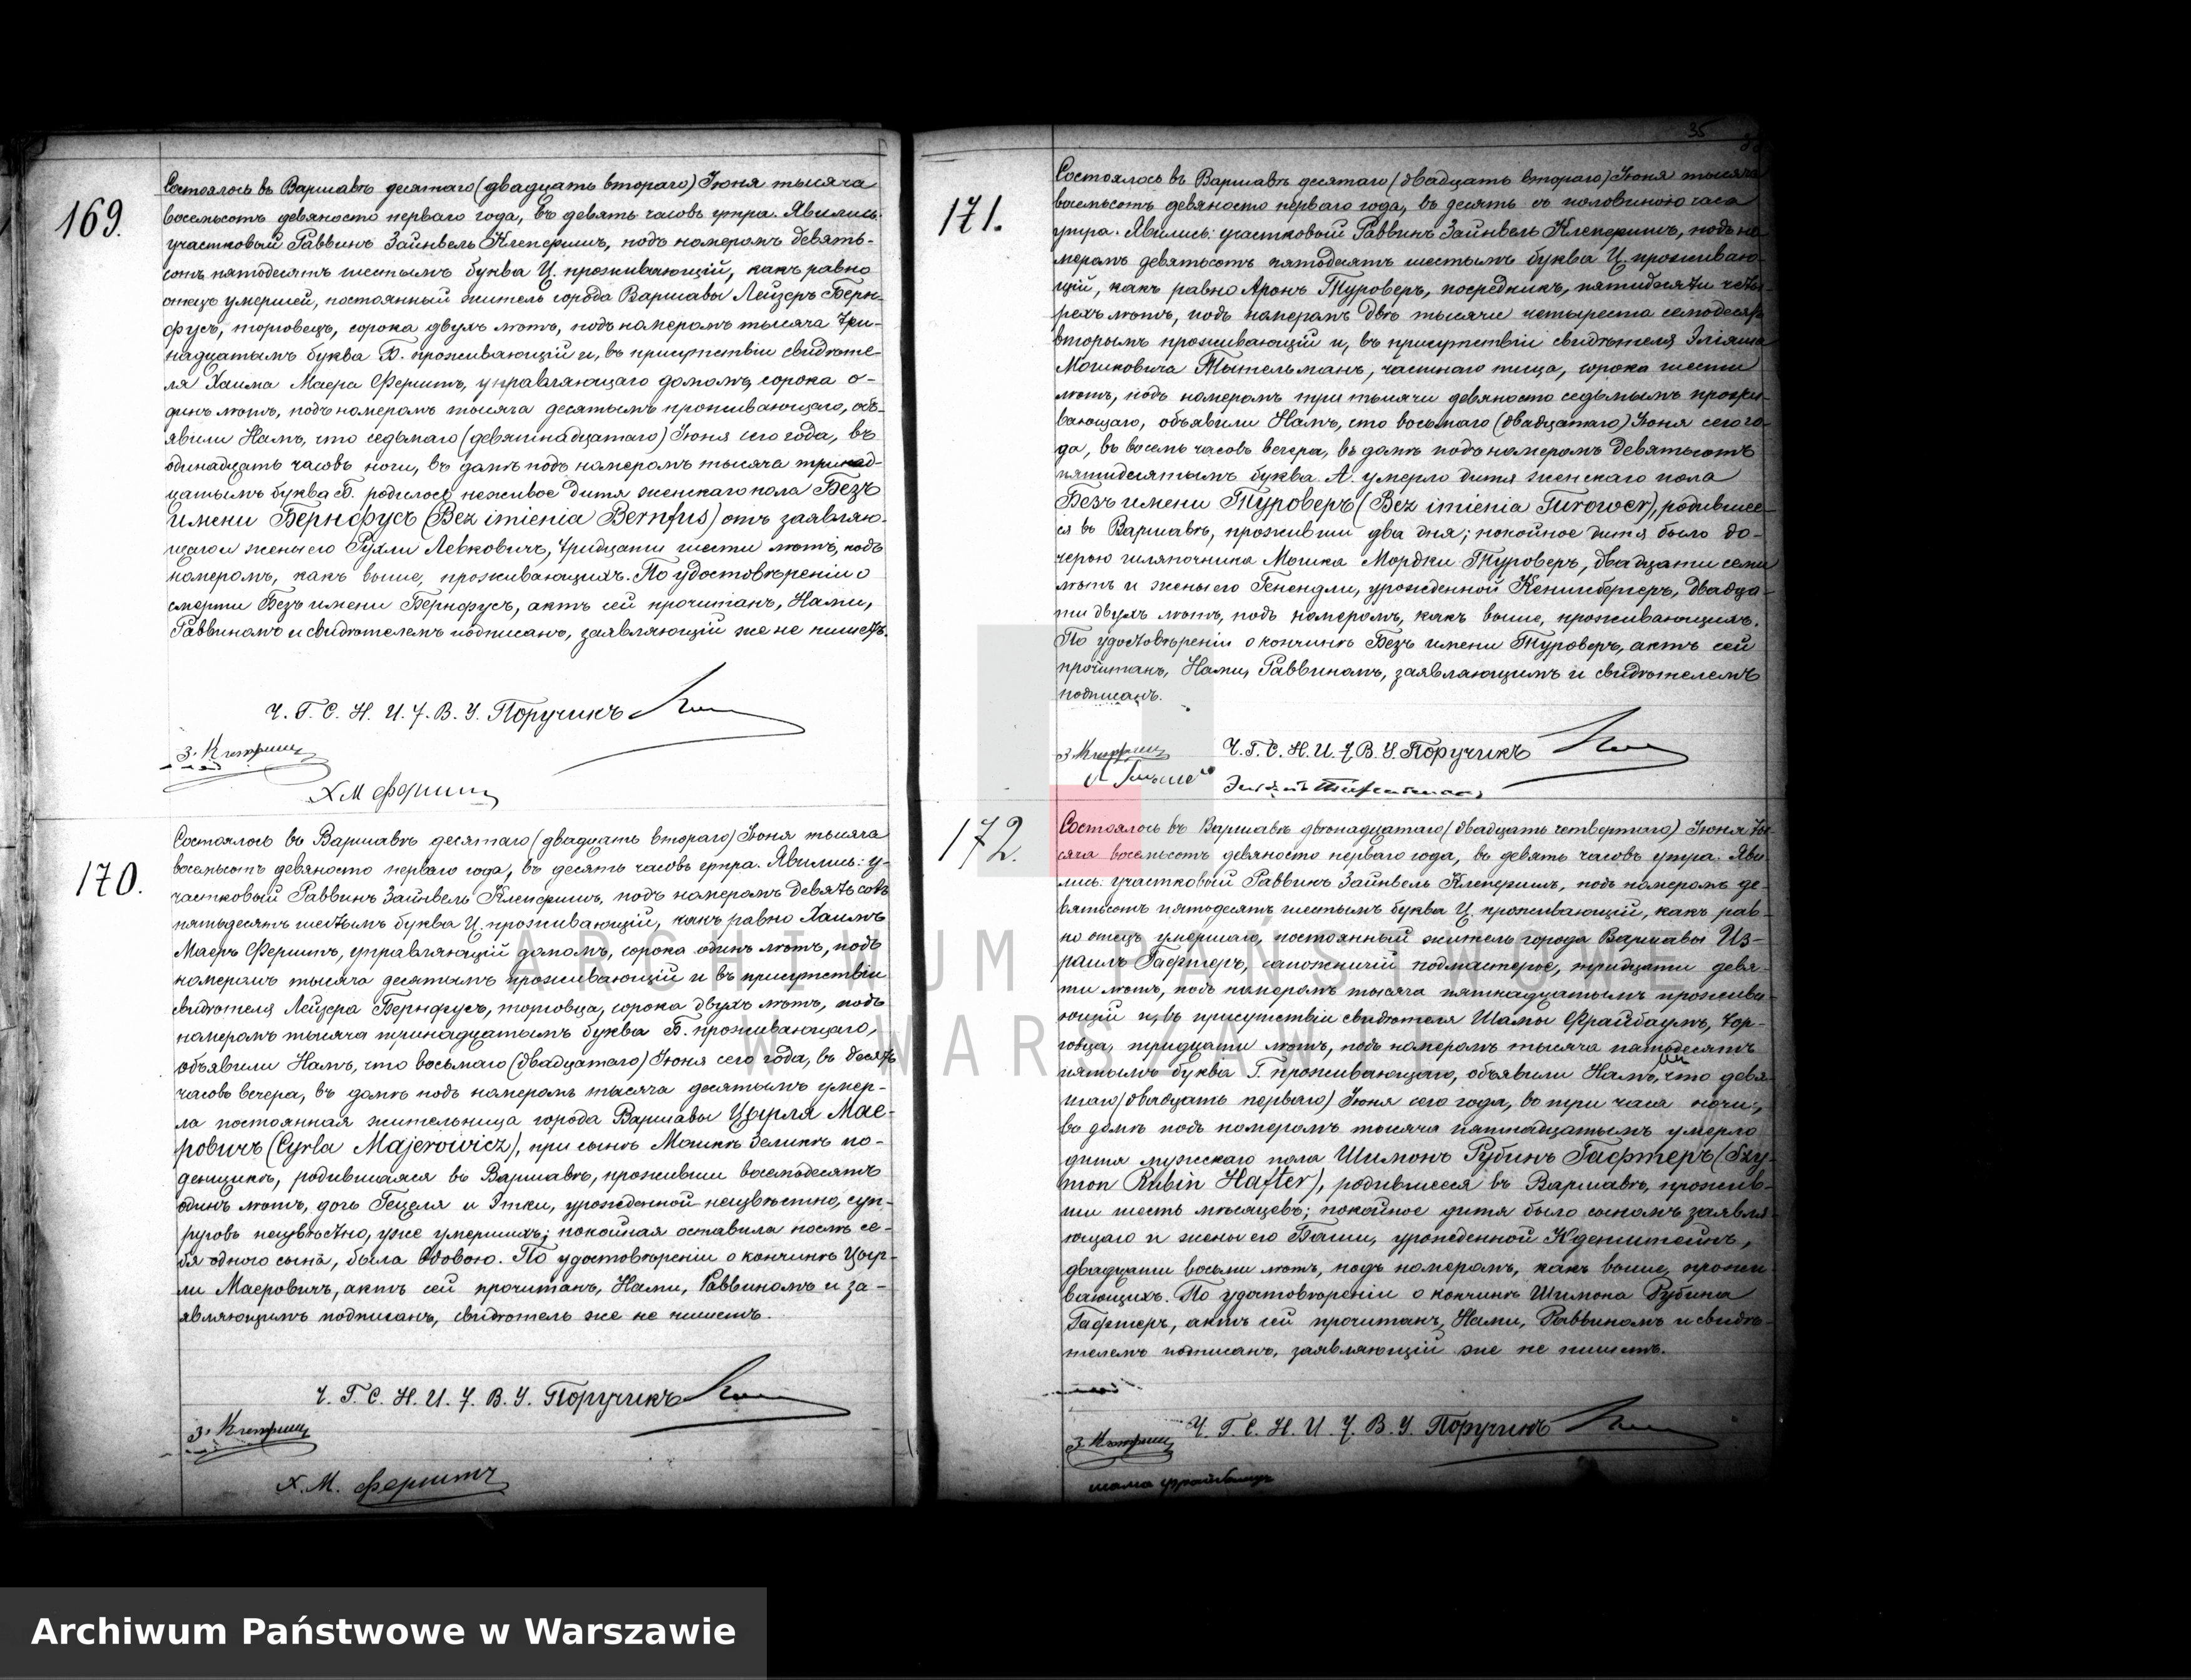 169.
Состоялось въ Варшавѣ десятаго (двадцать втораго) Іюня тысяча
восемьсотъ девяносто перваго года, въ девять часовъ утра. Явились:
участковый Раввинъ Зайнвель Клепфишъ, подъ номеромъ девять-
сотъ пятьдесятъ шестымъ буква Ц. проживающій, какъ равно
отецъ умершей, постоянный житель города Варшавы Лейзеръ Берн-
фусъ, торговецъ, сорока двухъ лѣтъ, подъ номеромъ тысяча три-
надцатымъ буква Б. проживающій и, въ присутствіи свидѣте-
ля Хаима Маера Фершта, управляющаго домомъ, сорока о-
динъ лѣтъ, подъ номеромъ тысяча десятымъ проживающаго, объ-
явили Намъ, что седьмаго (девятнадцатаго) Іюня сего года, въ
одинадцать часовъ ночи, въ домѣ подъ номеромъ тысяча тринад-
цатымъ буква Б. родилось неживое дитя женскаго пола Безъ
имени Бернфусъ (Bez imienia Bernfus) отъ заявляю-
щаго и жены его Рухли Левковичъ, тридцати шести лѣтъ, подъ
номеромъ, какъ выше, проживающихъ. По удостовѣреніи о
смерти Безъ имени Бернфусъ, актъ сей прочитанъ, Нами,
Раввиномъ и свидѣтелемъ подписанъ, заявляющій же не пишетъ.
Ч. Г. С. Н. И. 7. В. У. Поручикъ
З. Клепфиш
Х М Фершт
170.
Состоялось въ Варшавѣ десятаго (двадцать втораго) Іюня тысяча
восемьсотъ девяносто перваго года, въ десять часовъ утра. Явились: у-
частковый Раввинъ Зайнвель Клепфишъ, подъ номеромъ девятьсотъ
пятьдесятъ шестымъ буква Ц. проживающій, какъ равно Хаимъ
Маеръ Ферштъ, управляющій домомъ, сорока одинъ лѣтъ, подъ
номеромъ тысяча десятымъ проживающій и въ присутствіи
свидѣтеля Лейзера Бернфусъ, торговца, сорока двухъ лѣтъ, подъ
номеромъ тысяча тринадцатымъ буква Б. проживающаго,
объявили Намъ, что восьмаго (двадцатаго) Іюня сего года, въ десять
часовъ вечера, въ домѣ подъ номеромъ тысяча десятымъ умер-
ла постоянная жительница города Варшавы Цырля Мае-
ровичъ (Cyrla Majerowicz), при сынѣ Мошкѣ Зеликѣ по-
денщикѣ, родившаяся въ Варшавѣ, проживши восемьдесятъ
одинъ лѣтъ, дочь Гецеля и Итки, урожденной неизвѣстно, суп-
руговъ неизвѣстно, уже умершихъ; покойная оставила послѣ се-
бя одного сына, была вдовою. По удостовѣреніи о кончинѣ Цыр-
ли Маеровичъ, актъ сей прочитанъ, Нами, Раввиномъ и за-
являющимъ подписанъ, свидѣтель же не пишетъ.
Ч. Г. С. Н. И. 7. В. У. Поручикъ
З. Клепфиш
Х. М. Ферштъ
35
171.
Состоялось въ Варшавѣ десятаго (двадцать втораго) Іюня тысяча
восемьсотъ девяносто перваго года, въ десять съ половиною часа
утра. Явились: участковый Раввинъ Зайнвель Клепфишъ, подъ но-
меромъ девятьсотъ пятьдесятъ шестымъ буква Ц. проживаю-
щій, какъ равно Аронъ Туроверъ, посредникъ, пятидесяти четы-
рехъ лѣтъ, подъ номеромъ двѣ тысячи четыреста семьдесятъ
вторымъ проживающій и, въ присутствіи свидѣтеля Эліяша
Мошковича Тытельманъ, частнаго писца, сорока шести
лѣтъ, подъ номеромъ три тысячи девяносто седьмымъ прожи-
вающаго, объявили Намъ, что восьмаго (двадцатаго) Іюня сего го-
да, въ восемь часовъ вечера, въ домѣ подъ номеромъ девятьсотъ
пятидесятымъ буква А. умерло дитя женскаго пола
Безъ имени Туроверъ (Bez imienia Turower), родившее-
ся въ Варшавѣ, проживши два дня; покойное дитя было до-
черью шляпочника Мошка Мордки Туроверъ, двадцати семи
лѣтъ и жены его Генендли, урожденной Кенигсбергеръ, двадца-
ти двухъ лѣтъ, подъ номеромъ, какъ выше, проживающихъ.
По удостовѣреніи о кончинѣ Безъ имени Туроверъ, актъ сей
прочитанъ, Нами, Раввиномъ, заявляющимъ и свидѣтелемъ
подписанъ.
З Клепфиш Ч. Г. С. Н. И. 7 В. У. Поручикъ
172.
Состоялось въ Варшавѣ двѣнадцатаго (двадцать четвертаго) Іюня ты-
сяча восемьсотъ девяносто перваго года, въ девять часовъ утра. Яви-
лись: участковый Раввинъ Зайнвель Клепфишъ, подъ номеромъ де-
вятьсотъ пятьдесятъ шестымъ буква Ц. проживающій, какъ рав-
но отецъ умершаго, постоянный житель города Варшавы Из-
раиль Гафтеръ, сапожничій подмастерье, тридцати девя-
ти лѣтъ, подъ номеромъ тысяча пятнадцатымъ прожива-
ющій и, въ присутствіи свидѣтеля Шамы Фрайбаумъ, тор-
говца, тридцати лѣтъ, подъ номеромъ тысяча пятьдесятъ
пятымъ буква Г. проживающаго, объявили Намъ, что девя-
таго (двадцать перваго) Іюня сего года, въ три часа ночи,
въ домѣ подъ номеромъ тысяча пятнадцатымъ умерло
дитя мужскаго пола Шимонъ Рубинъ Гафтеръ (Szy-
mon Rubin Hafter), родившееся въ Варшавѣ, прожив-
ши шесть мѣсяцевъ; покойное дитя было сыномъ заявля-
ющаго и жены его Баши, урожденной Иденштейнъ,
двадцати восьми лѣтъ, подъ номеромъ, какъ выше, прожи-
вающихъ. По удостовѣреніи о кончинѣ Шимона Рубина
Гафтеръ, актъ сей прочитанъ, Нами, Раввиномъ и свидѣ-
телемъ подписанъ, заявляющій же не пишетъ.
Ч. Г. С. Н. И. 7. В. У. Поручикъ
З. Клепфиш
шама фрайбаумъ
ARCHIWUM PAŃSTWOWE
W WARSZAWIE
Archiwum Państwowe w Warszawie